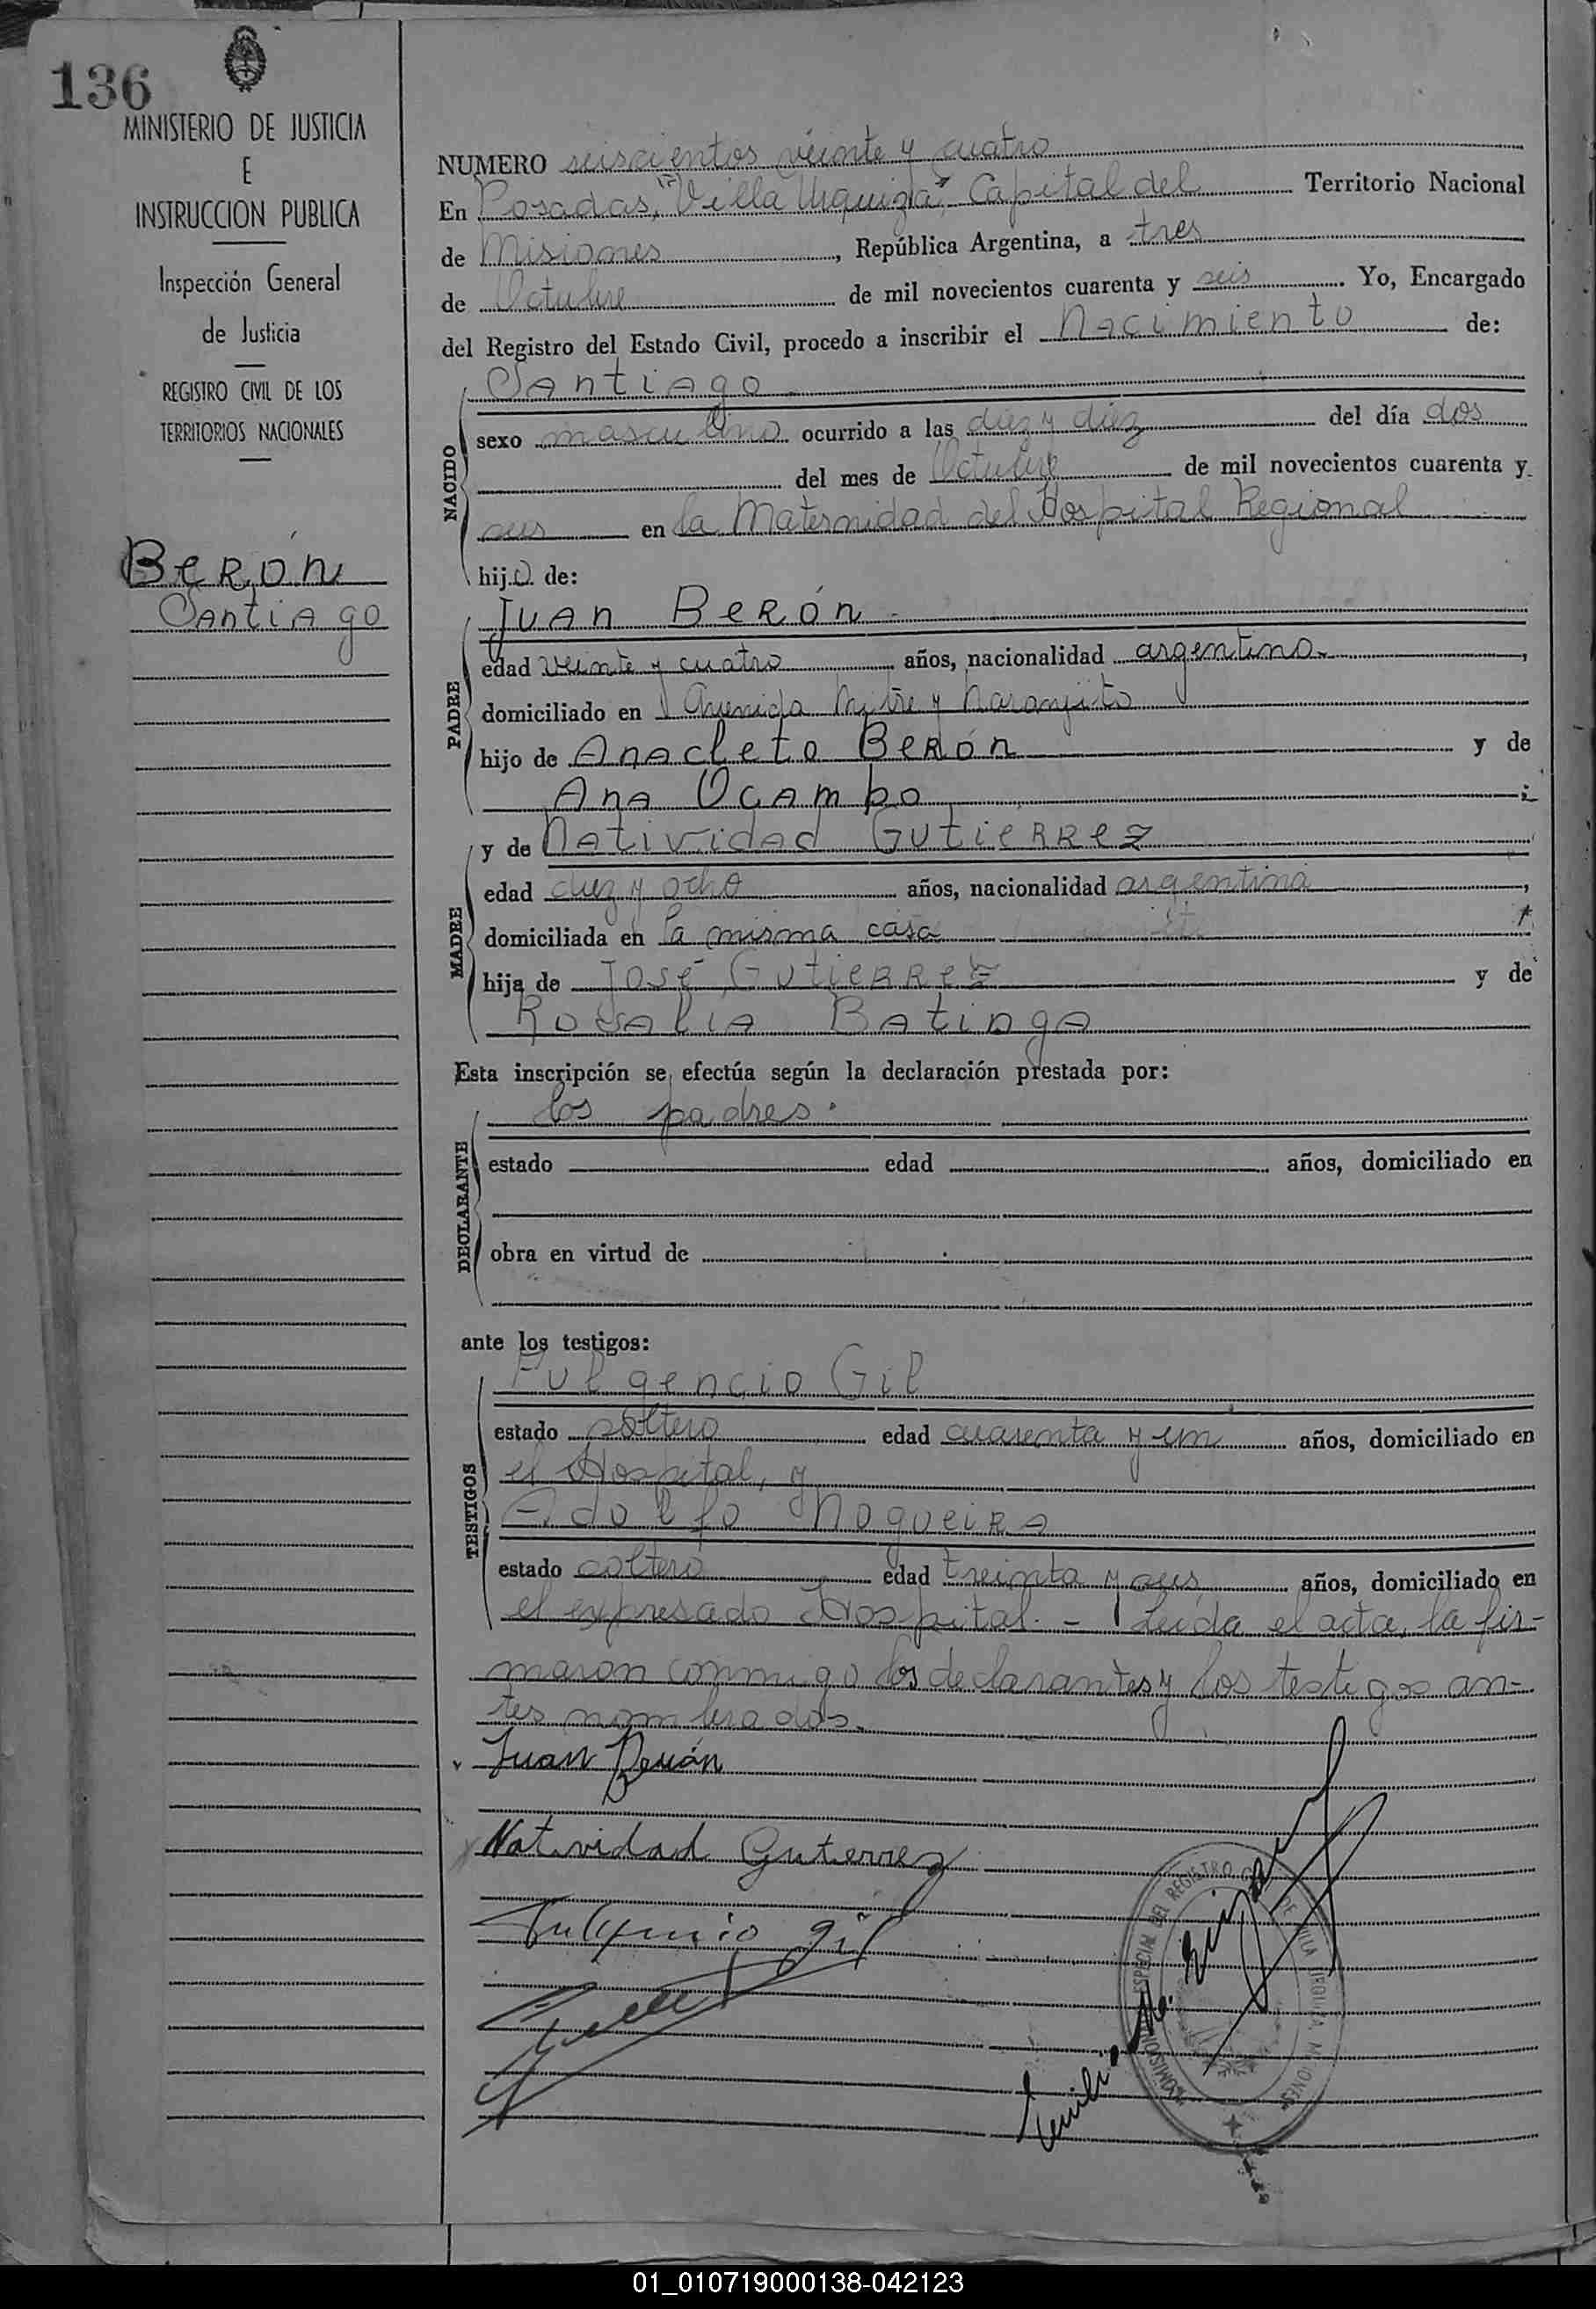 136
MINISTERIO DE JUSTICIA
E
INSTRUCCION PUBLICA
Inspección General
de Justicia
REGISTRO CIVIL DE LOS
TERRITORIOS NACIONALES
Berón
Santiago
NUMERO seiscientos veinte y cuatro
En Posadas, "Villa Urquiza", Capital del Territorio Nacional
de Misiones, República Argentina, a tres
de Octubre de mil novecientos cuarenta y seis. Yo, Encargado
del Registro del Estado Civil, procedo a inscribir el Nacimiento de:
NACIDO
Santiago
sexo masculino ocurrido a las diez y diez del día dos
del mes de Octubre de mil novecientos cuarenta y
seis en la Maternidad del Hospital Regional
hijo de:
PADRE
Juan Berón
edad veinte y cuatro años, nacionalidad argentino,
domiciliado en Avenida Mitre y Naranjito
hijo de Anacleto Berón y de
Ana Ocampo
MADRE
y de Natividad Gutierrez
edad diez y ocho años, nacionalidad argentina,
domiciliada en la misma casa
hija de José Gutierrez y de
Rosalia Batinga
Esta inscripción se efectúa según la declaración prestada por:
DECLARANTE
los padres.
estado edad años, domiciliado en
obra en virtud de
ante los testigos:
TESTIGOS
Fulgencio Gil
estado soltero edad cuarenta y un años, domiciliado en
el Hospital, y
Adolfo Nogueira
estado soltero edad treinta y seis años, domiciliado en
el expresado Hospital. - Leída el acta, la fir-
maron conmigo los declarantes y los testigos an-
tes nombrados.
Juan Berón
Natividad Gutierrez
Fulgencio Gil
Emilio
01_010719000138-042123